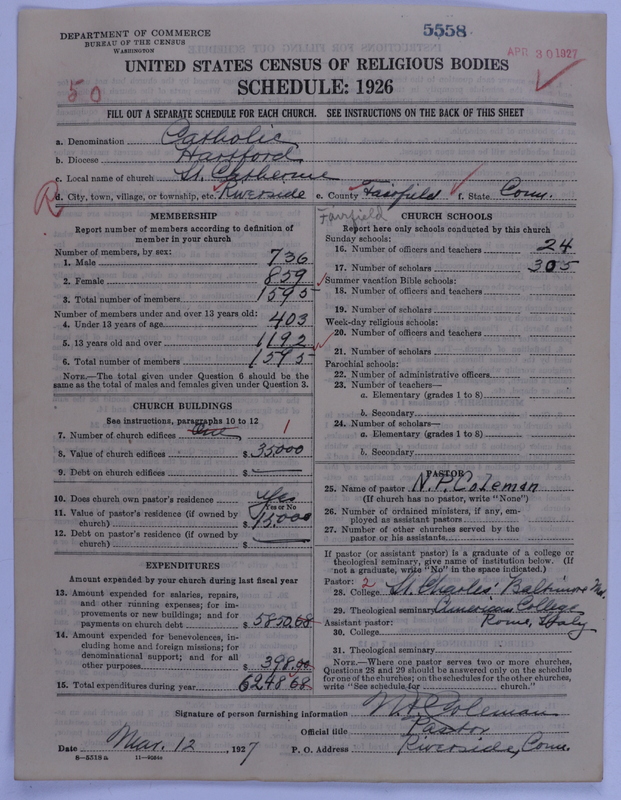 DEPARTMENT OF COMMERCE
BUREAU OF THE CENSUS
WASHINGTON
5558
APR 30 1927
UNITED STATES CENSUS OF RELIGIOUS BODIES
SCHEDULE: 1926
50
FILL OUT A SEPARATE SCHEDULE FOR EACH CHURCH. SEE INSTRUCTIONS ON THE BACK OF THIS SHEET
a. Denomination Catholic
b. Diocese Hartford
c. Local name of church St. Catherine
R
d. City, town, village, or township, etc. Riverside e. County Fairfield f. State Conn.
MEMBERSHIP
Report number of members according to definition of
member in your church
Number of members, by sex:
1. Male 736
2. Female 859
3. Total number of members 1595
Number of members under and over 13 years old:
4. Under 13 years of age 403
5. 13 years old and over 1192
6. Total number of members 1595
NOTE.—The total given under Question 6 should be the
same as the total of males and females given under Question 3.
CHURCH BUILDINGS
See instructions, paragraphs 10 to 12
7. Number of church edifices One 1
8. Value of church edifices $ 35000
9. Debt on church edifices $
10. Does church own pastor's residence Yes
Yes or No
11. Value of pastor's residence (if owned by
church) $ 15,000
12. Debt on pastor's residence (if owned by
church) $
EXPENDITURES
Amount expended by your church during last fiscal year
13. Amount expended for salaries, repairs,
and other running expenses; for im-
provements or new buildings; and for
payments on church debt $ 5850.68
14. Amount expended for benevolences, in-
cluding home and foreign missions; for
denominational support; and for all
other purposes $ 398.00
15. Total expenditures during year 6248 68
Fairfield
CHURCH SCHOOLS
Report here only schools conducted by this church
Sunday schools:
16. Number of officers and teachers 24
17. Number of scholars 305
Summer vacation Bible schools:
18. Number of officers and teachers
19. Number of scholars
Week-day religious schools:
20. Number of officers and teachers
21. Number of scholars
Parochial schools:
22. Number of administrative officers
23. Number of teachers—
a. Elementary (grades 1 to 8)
b. Secondary
24. Number of scholars—
a. Elementary (grades 1 to 8)
b. Secondary
PASTOR
25. Name of pastor N. P. Coleman
(If church has no pastor, write "None")
26. Number of ordained ministers, if any, em-
ployed as assistant pastors
27. Number of other churches served by the
pastor or his assistants
If pastor (or assistant pastor) is a graduate of a college or
theological seminary, give name of institution below. (If
not a graduate, write "No" in the space indicated.)
Pastor: 2
28. College St. Charles' Baltimore Md.
29. Theological seminary American College
Assistant pastor: Rome, Italy
30. College
31. Theological seminary
NOTE.—Where one pastor serves two or more churches,
Questions 28 and 29 should be answered only on the schedule
for one of the churches; on the schedules for the other churches,
write "See schedule for church."
Signature of person furnishing information N. P. Coleman
Official title Pastor
Date Mar. 12, 1927 P. O. Address Riverside, Conn.